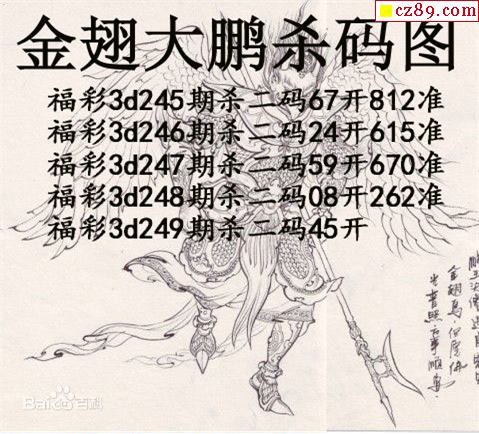 cz89.com
金翅大鹏杀码图
福彩3d245期杀二码67开812准
福彩3d246期杀二码24开615准
福彩3d247期杀二码59开670准
福彩3d248期杀二码08开262准
福彩3d249期杀二码45开
Bai百科